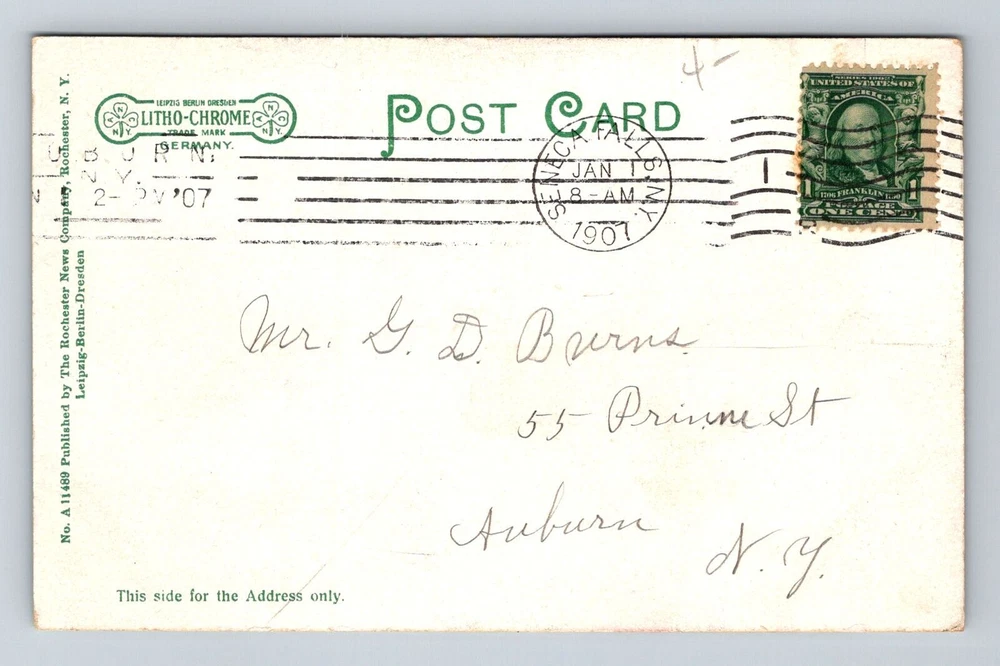 4-
LEIPZIG BERLIN DRESDEN
LITHO-CHROME
TRADE MARK
GERMANY.
POST CARD
SERIES 1902
UNITED STATES OF
AMERICA
1 1706 FRANKLIN 1790 1
POSTAGE
ONE CENT
SENECA FALLS, N.Y.
JAN 1
8-AM
1907
1
U B U R N,
N. Y.
2- PM '07
No. A 11489 Published by The Rochester News Company, Rochester, N. Y.
Leipzig-Berlin-Dresden
Mr. G. D. Burns.
55 St
Auburn
N. Y.
This side for the Address only.